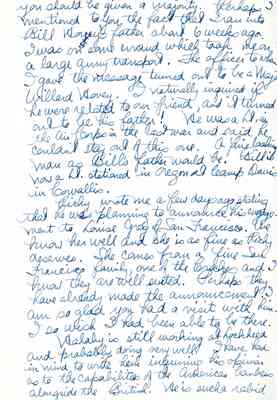 you should be given a majority. Perhaps I
mentioned to you the fact that I ran into
Bill Hovey's father about two weeks ago.
I was on some errand which took me on
a large army transport. The officer to whom
I gave the message turned out to be a Major
Willard Hovey. I naturally inquired if
he were related to our friend, and it turned
out to be his father! He was a Lt. in
the Air Corps in the last war and said he
couldn't stay out of this one. A fine looking
man as Bill's father would be. Bill is
now a Lt. stationed in Oregon at Camp Adair
in Corvallis.
Dicky wrote me a few days ago stating
that he was planning to announce his engage-
ment to Louise Gody of San Francisco. We
know her well and she is as fine as Dicky
deserves. She comes from a fine San
Francisco family, one of the bankers and I
know they are well suited. Perhaps they
have already made the announcement. I
am so glad you had a visit with him.
I so wish I had been able to be there.
is still working at Lockheed
and probably doing very well. I have had
in mind to write him inquiring his opinion
as to the capabilities of the American bombers
alongside the British. He is such a rabid